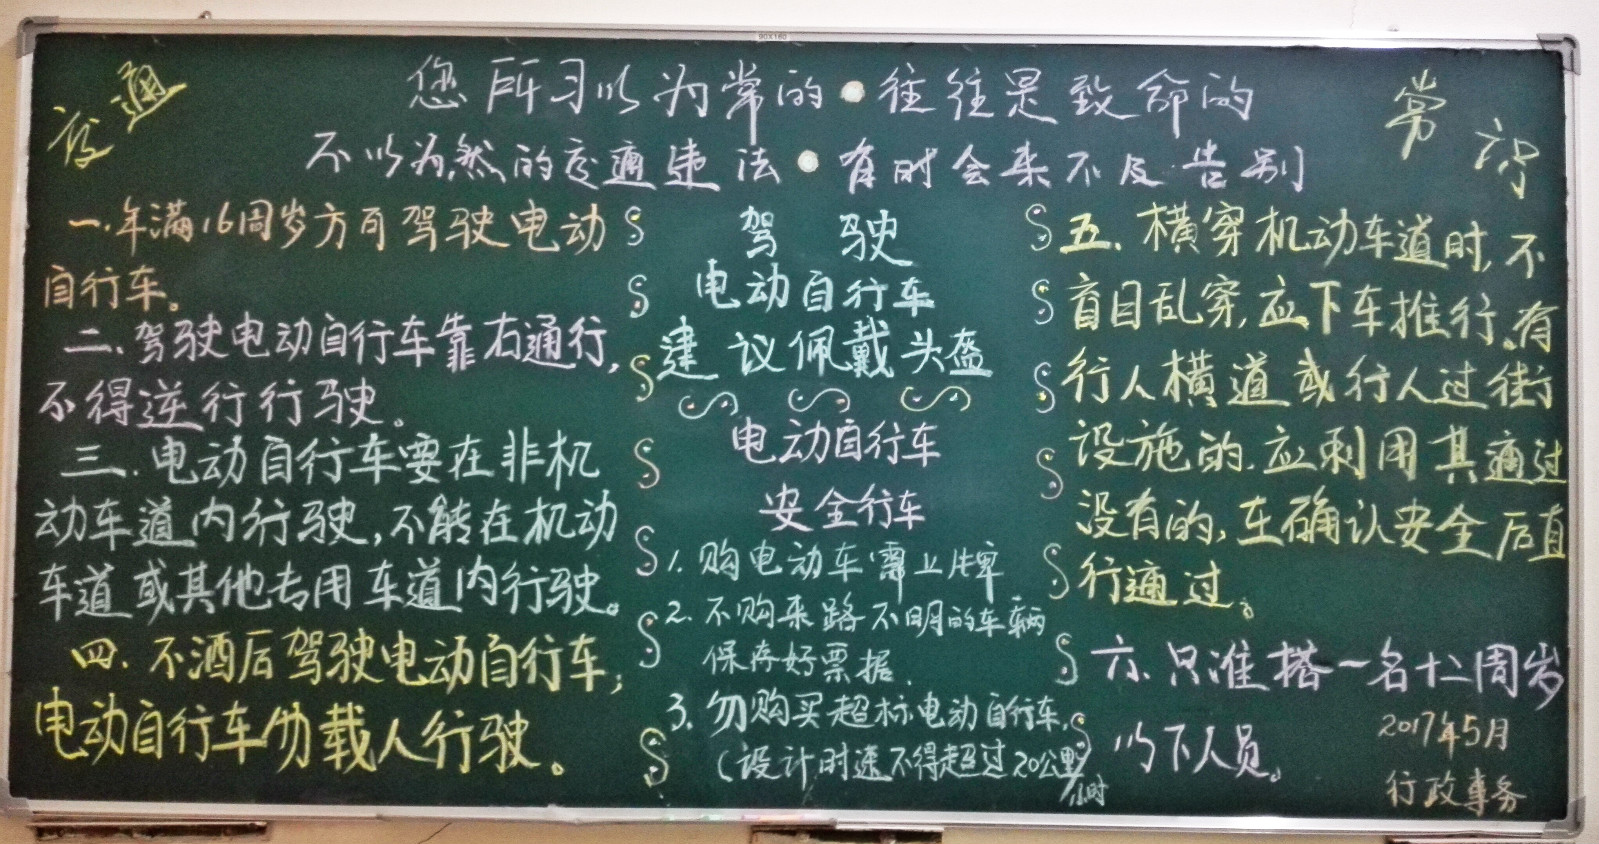 90X180
交通
常识
您所习以为常的·往往是致命的
不以为然的交通违法·有时会来不及告别
一.年满16周岁方可驾驶电动
自行车。
二、驾驶电动自行车靠右通行,
不得逆行行驶。
三.电动自行车要在非机
动车道内行驶,不能在机动
车道或其他专用车道内行驶。
四.不酒后驾驶电动自行车,
电动自行车勿载人行驶。
驾驶
电动自行车
建议佩戴头盔
电动自行车
安全行车
1.购电动车需上牌
2.不购来路不明的车辆
保存好票据.
3.勿购买超标电动自行车.
(设计时速不得超过20公里/小时
五.横穿机动车道时,不
盲目乱穿,应下车推行。有
行人横道或行人过街
设施的.应利用其通过
没有的,在确认安全后直
行通过。
六.只准搭一名十二周岁
以下人员。
2017年5月
行政事务